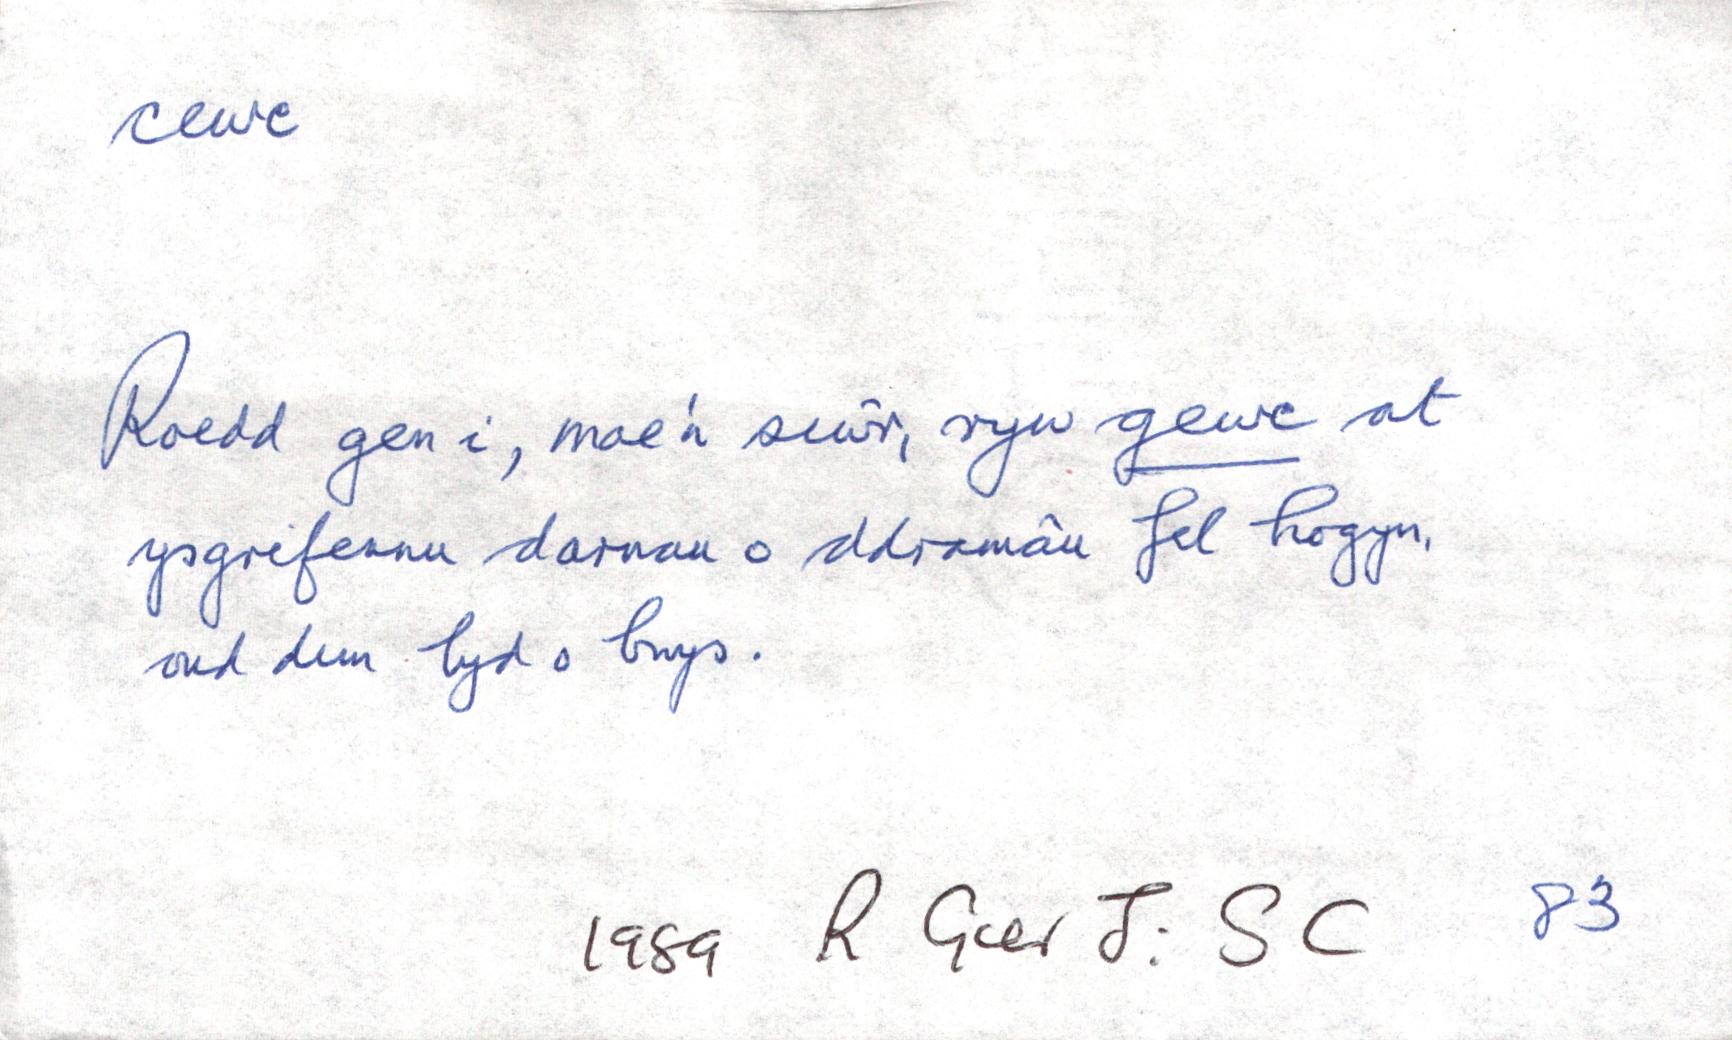 cewc
Roedd gen i, mae'n siŵr, ryw gewc at
ysgrifennu darnau o ddramâu fel hogyn,
ond dim byd o bwys.
1989 R Gwer J: SC 83